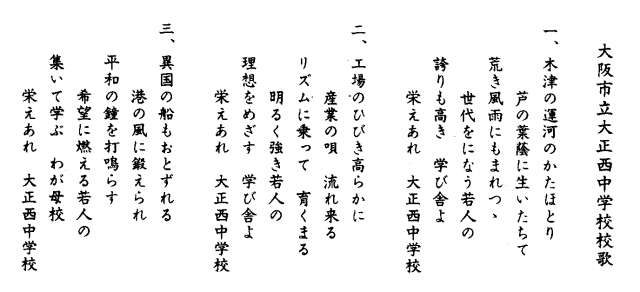 大阪市立大正西中学校校歌
一、木津の運河のかたほとり
芦の葉蔭に生いたちて
荒き風雨にもまれつゝ
世代をになう若人の
誇りも高き　学び舎よ
栄えあれ　大正西中学校
二、工場のひびき高らかに
産業の唄　流れ来る
リズムに乗って　育くまる
明るく強き若人の
理想をめざす　学び舎よ
栄えあれ　大正西中学校
三、異国の船もおとずれる
港の風に鍛えられ
平和の鐘を打鳴らす
希望に燃える若人の
集いて学ぶ　わが母校
栄えあれ　大正西中学校